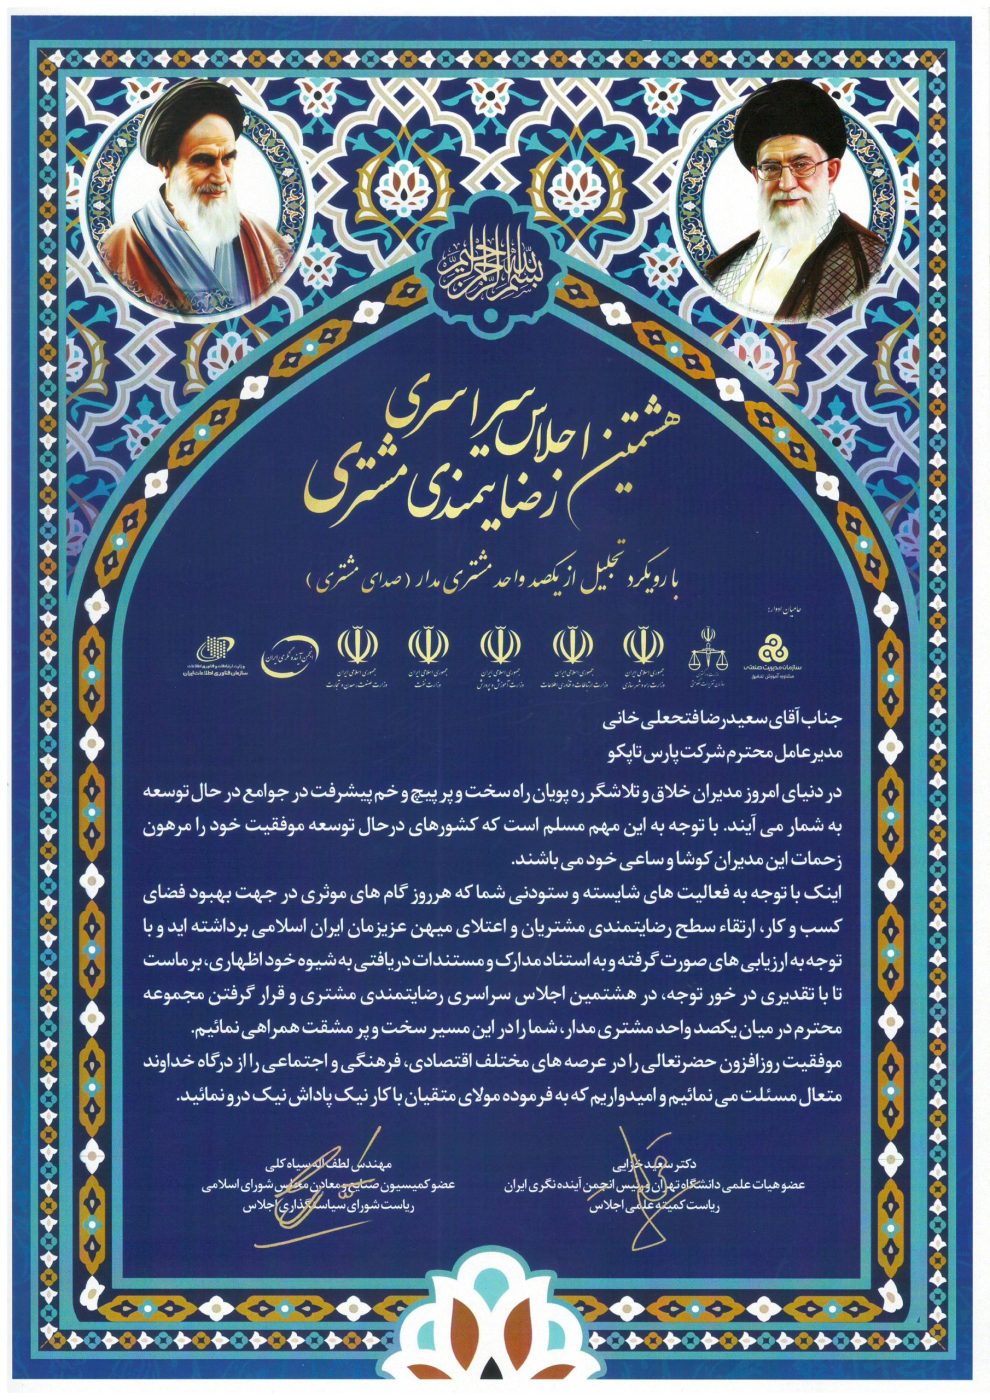 بسم الله الرحمن الرحیم
هشتمین اجلاس سراسری
رضایتمندی مشتری
با رویکرد تجلیل از یکصد واحد مشتری مدار (صدای مشتری)
حامیان ادوار:
سازمان مدیریت صنعتی
مشاوره آموزش تحقیق
جمهوری اسلامی ایران
وزارت راه و شهرسازی
جمهوری اسلامی ایران
وزارت ارتباطات و فناوری اطلاعات
جمهوری اسلامی ایران
وزارت آموزش و پرورش
جمهوری اسلامی ایران
وزارت نفت
جمهوری اسلامی ایران
وزارت صنعت، معدن و تجارت
انجمن آینده نگری ایران
وزارت ارتباطات و فناوری اطلاعات
سازمان فناوری اطلاعات ایران
جناب آقای سعیدرضا فتحعلی خانی
مدیرعامل محترم شرکت پارس تاپکو
در دنیای امروز مدیران خلاق و تلاشگر ره پویان راه سخت و پر پیچ و خم پیشرفت در جوامع در حال توسعه
به شمار می آیند. با توجه به این مهم مسلم است که کشورهای درحال توسعه موفقیت خود را مرهون
زحمات این مدیران کوشا و ساعی خود می باشند.
اینک با توجه به فعالیت های شایسته و ستودنی شما که هرروز گام های موثری در جهت بهبود فضای
کسب و کار، ارتقاء سطح رضایتمندی مشتریان و اعتلای میهن عزیزمان ایران اسلامی برداشته اید و با
توجه به ارزیابی های صورت گرفته و به استناد مدارک و مستندات دریافتی به شیوه خود اظهاری، بر ماست
تا با تقدیری در خور توجه، در هشتمین اجلاس سراسری رضایتمندی مشتری و قرار گرفتن مجموعه
محترم در میان یکصد واحد مشتری مدار، شما را در این مسیر سخت و پر مشقت همراهی نمائیم.
موفقیت روزافزون حضرتعالی را در عرصه های مختلف اقتصادی، فرهنگی و اجتماعی را از درگاه خداوند
متعال مسئلت می نمائیم و امیدواریم که به فرموده مولای متقیان با کار نیک پاداش نیک درو نمائید.
دکتر سعید خزایی
عضو هیات علمی دانشگاه تهران و رئیس انجمن آینده نگری ایران
ریاست کمیته علمی اجلاس
مهندس لطف اله سیاه کلی
عضو کمیسیون صنایع و معادن مجلس شورای اسلامی
ریاست شورای سیاستگذاری اجلاس